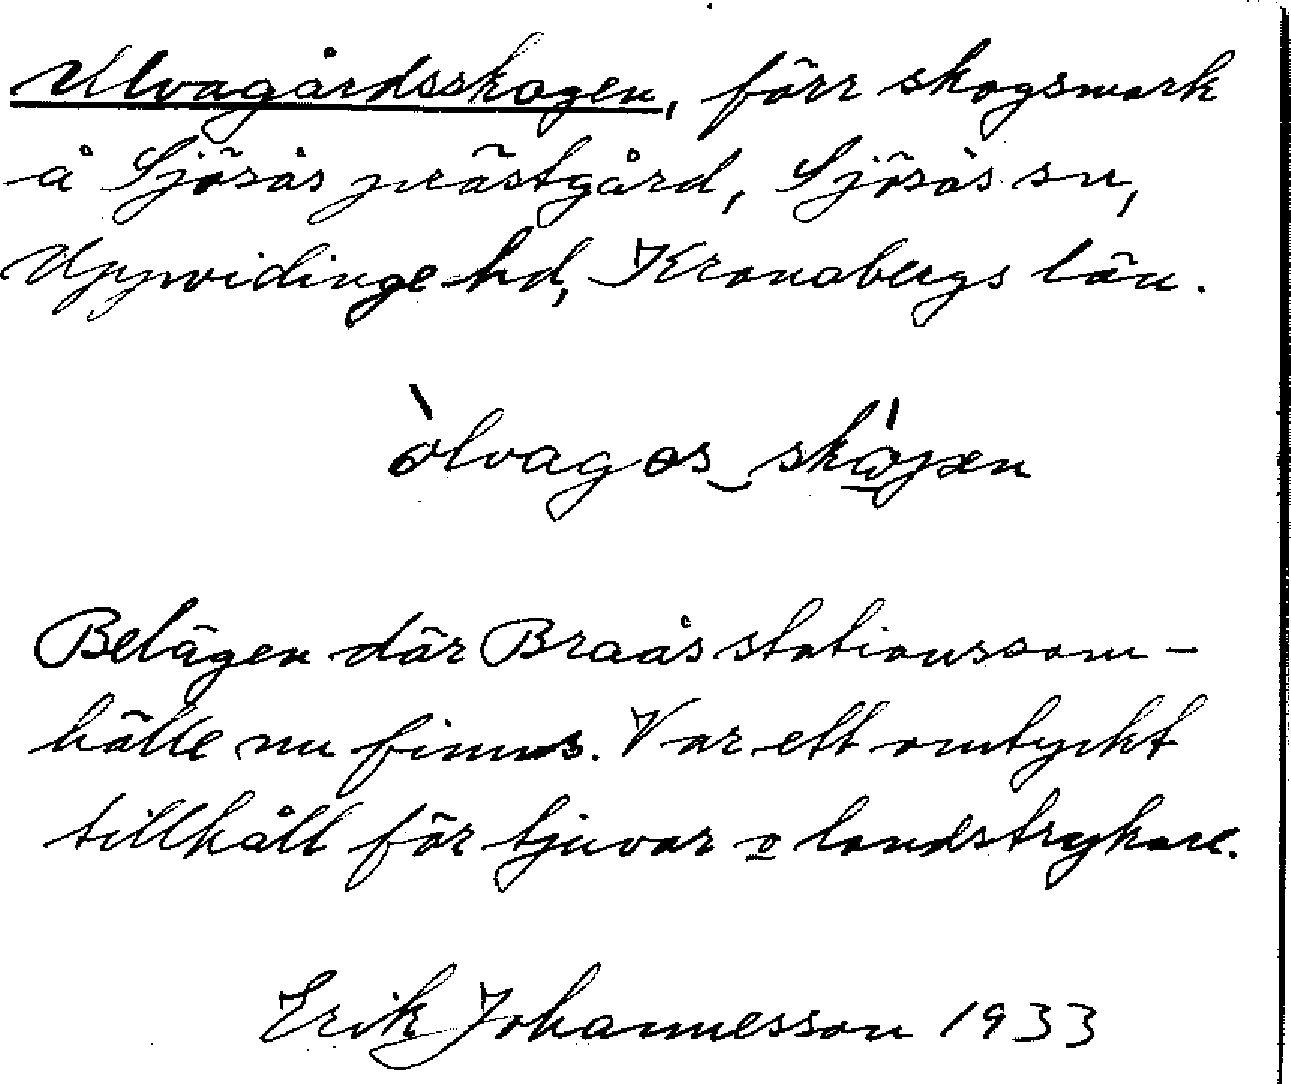 Ulvagårdsskogen, förr skogsmark
å Sjösås prästgård, Sjösås sn,
Uppvidinge hd, Kronobergs län.
Belägen där Braås stationssam-
hälle nu finns. Var ett omtyckt
tillhåll för tjuvar o landstrykare.
Erik Johannesson 1933